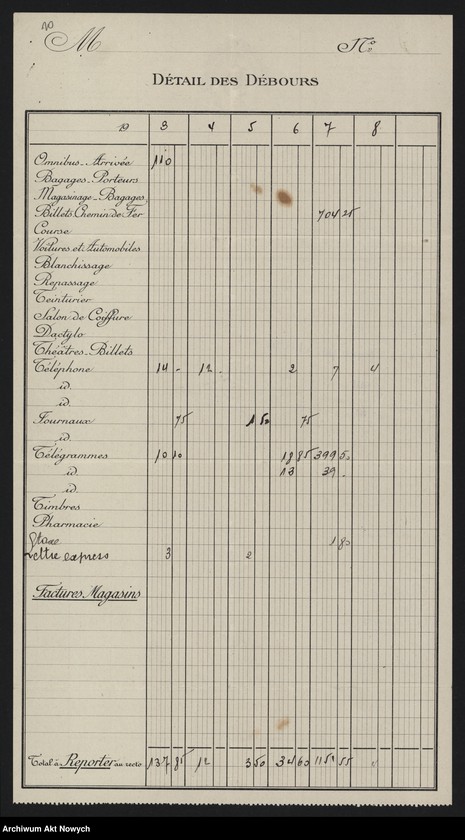 10
M
N.º
DÉTAIL DES DÉBOURS
19 3 4 5 6 7 8
Omnibus-Arrivée 110
Bagages-Porteurs
Magasinage-Bagages
Billets Chemin de Fer 704 25
Course
Voitures et Automobiles
Blanchissage
Repassage
Teinturier
Salon de Coiffure
Dactylo
Théâtres-Billets
Téléphone 14 - 12 - 2 7 4
id.
id.
Journaux 75 1 50 75
id.
Télégrammes 10 10 18 85 399 50
id. 13 39 -
id.
Timbres
Pharmacie
taxe 1 80
Lettre express 3 2
Factures Magasins
Total à Reporter au recto 137 85 12 3 50 34 60 1151 55
Archiwum Akt Nowych